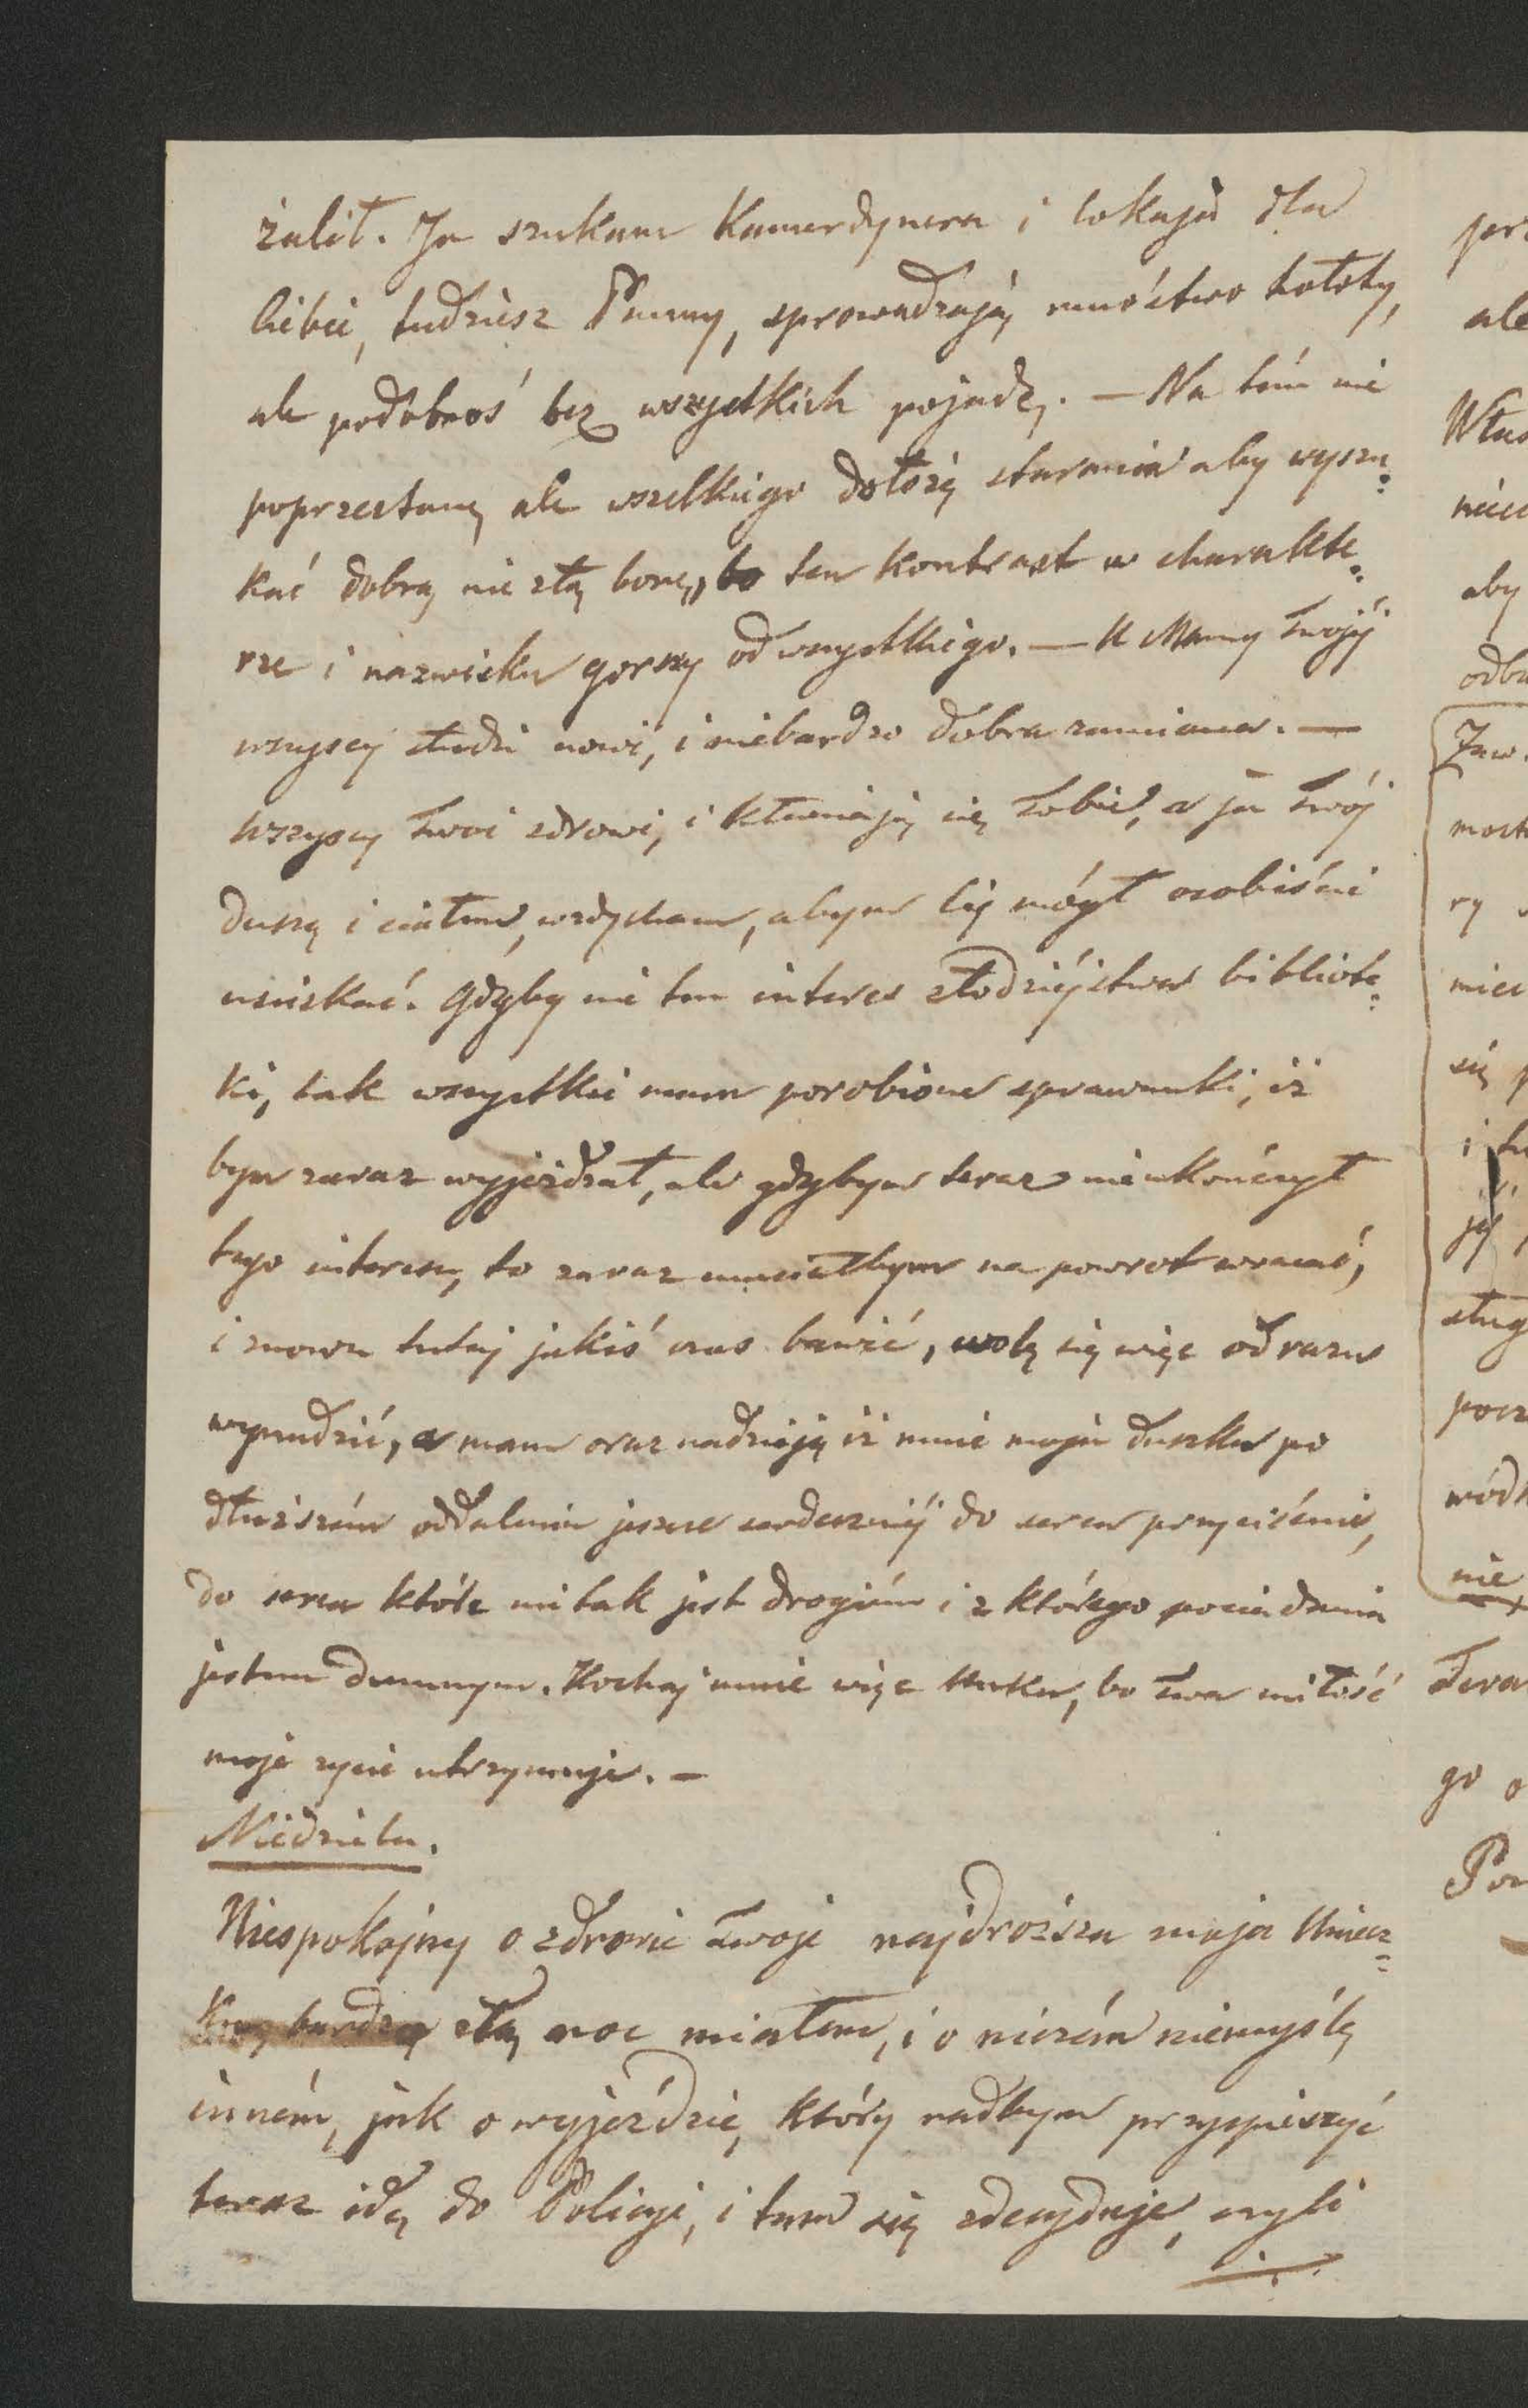 żalił. Ja szukam Kamerdynera i lokaja dla
Ciebie, tudziesz Panny, sprowadzają mnóstwo hołoty,
ale podobnoś bez wszystkich pojadę. — Na tém nie
poprzestanę ale wszelkiego dołożę starania aby wyszu=
kać dobrą nie złą bonę, bo ten kontrast w charakte=
rze i nazwisku gorszy od wszystkiego. — U Mamy twojéj
wszyscy słudzi nowi, i niebardzo dobra zamiana. —
Wszyscy twoi zdrowi, i kłaniają się Tobie, a ja twój
duszą i ciałem, wzdycham, abym Cię mógł osobiście
uściskać. Gdyby nie ten interes złodziéjstwa bibliote=
ki, tak wszystkie mam porobione sprawunki, iż
bym zaraz wyjeżdżał, ale gdybym teraz nieukończył
tego interesu, to zaraz musiałbym na powrot wracać,
i znowu tutaj jakiś czas bawić, wolę się więc od razu
wynudzić, a mam oraz nadzieję iż mnie moja duszka po
dłuższém oddaleniu jeszcze serdeczniéj do serca przyciśnie,
do serca które mi tak jest drogiém i z którego posiadania
jestem dumnym. Kochaj mnie więc bo twa miłość
moje życie utrzymuje. —
Niedziela.
Niespokojny o zdrowie twoje najdroższa moja
bardzo złą noc miałem, i o niczém niemyślę
inném, jak o wyjeździe, który radbym przyspieszyć
teraz idę do Policyi, i tam się zdecyduje, czyli
pr
ale
Włas
niec
aby
odb
most
ry
mie
się p
i tu
jéj
sług
pocz
wód
nie
Twa
go o
Po